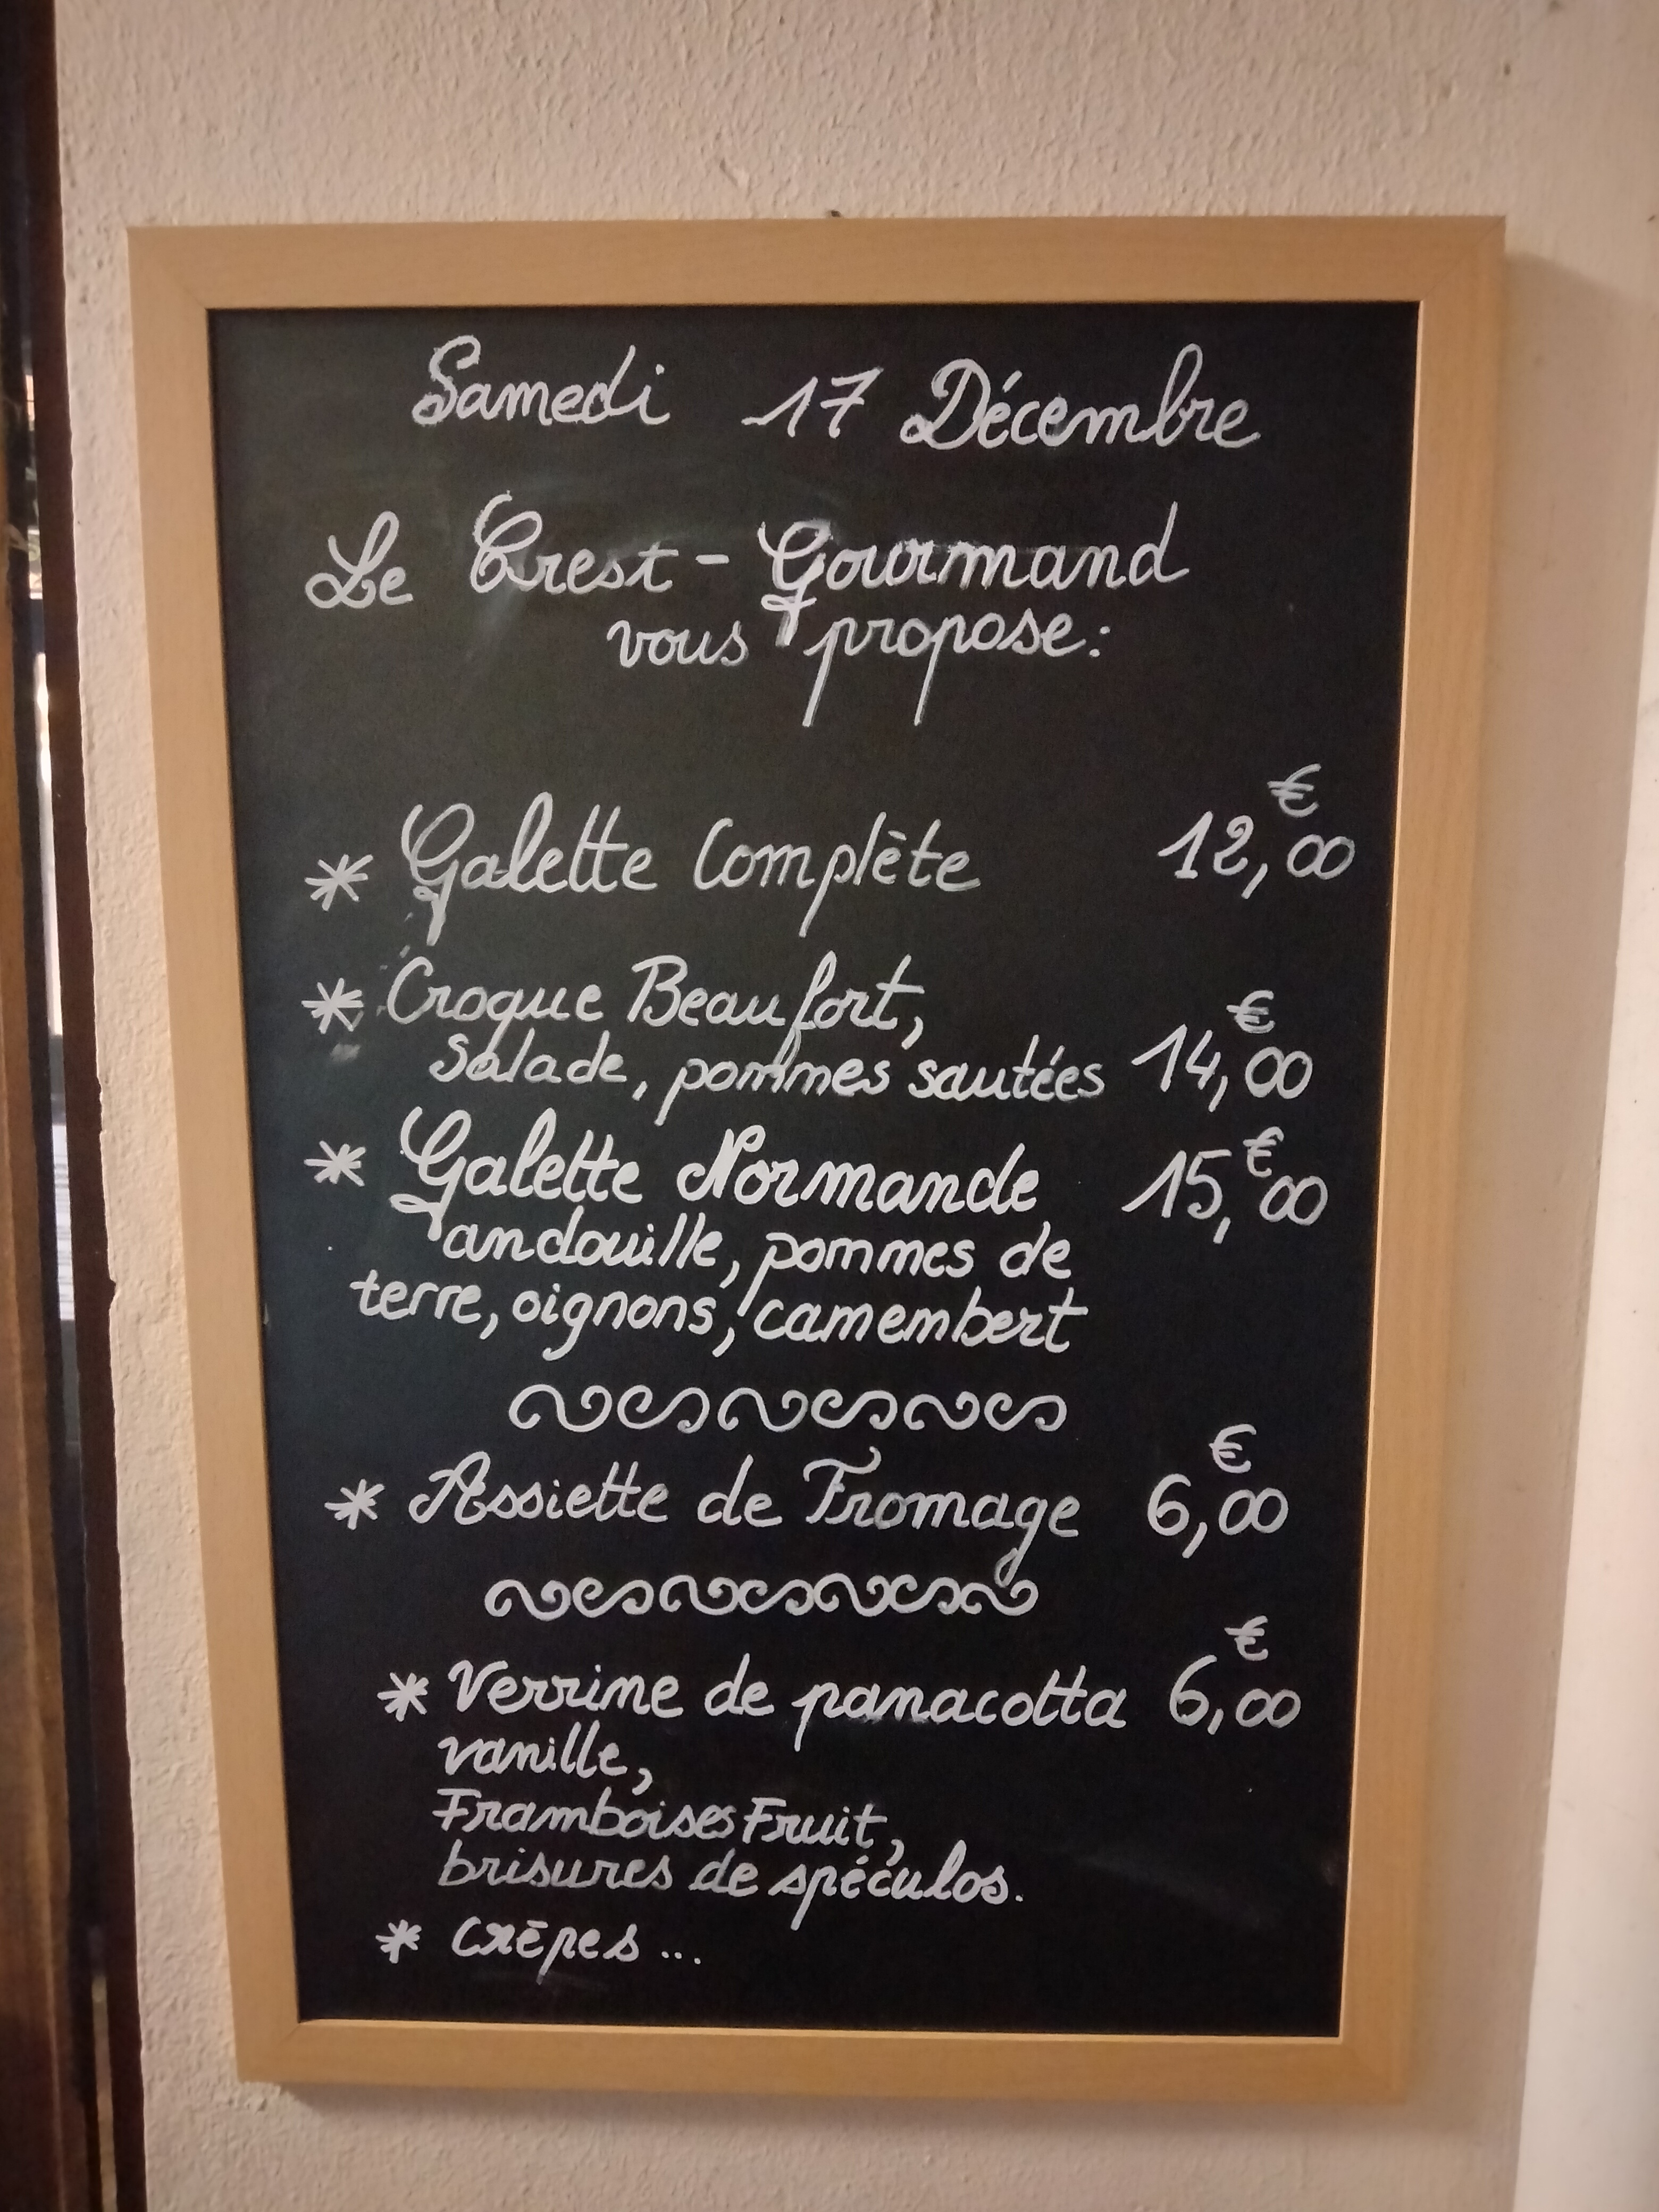 Samedi 17 Décembre
Le Crest-Gourmand
vous propose:
* Galette Complète 12,€00
* Croque Beaufort,
Salade, pommes sautées 14,€00
* Galette Normande 15,€00
andouille, pommes de
terre, oignons, camembert
* Assiette de Fromage 6,€00
* Verrine de panacotta 6,€00
vanille,
Framboises Fruit,
brisures de spéculos.
* Crêpes ...